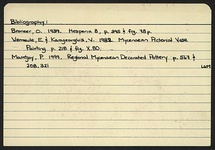 Bibliography:
Broneer, O. 1939. Hesperia 8, p. 398 & fig. 78 p.
Vermeule, E. & Karageorghis, V. 1982. Mycenaean Pictorial Vase
Painting. p. 218 & fig. X.80.
Mountjoy, P. 1999. Regional Mycenaean Decorated Pottery. p. 569 &
208, 321